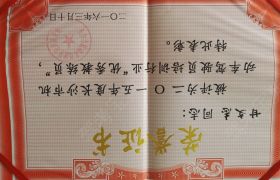 荣誉证书
同志：
被评为二〇一五年度长沙市机
动车驾驶员培训行业"优秀教练员"，
特此表彰。
二〇一六年三月十日